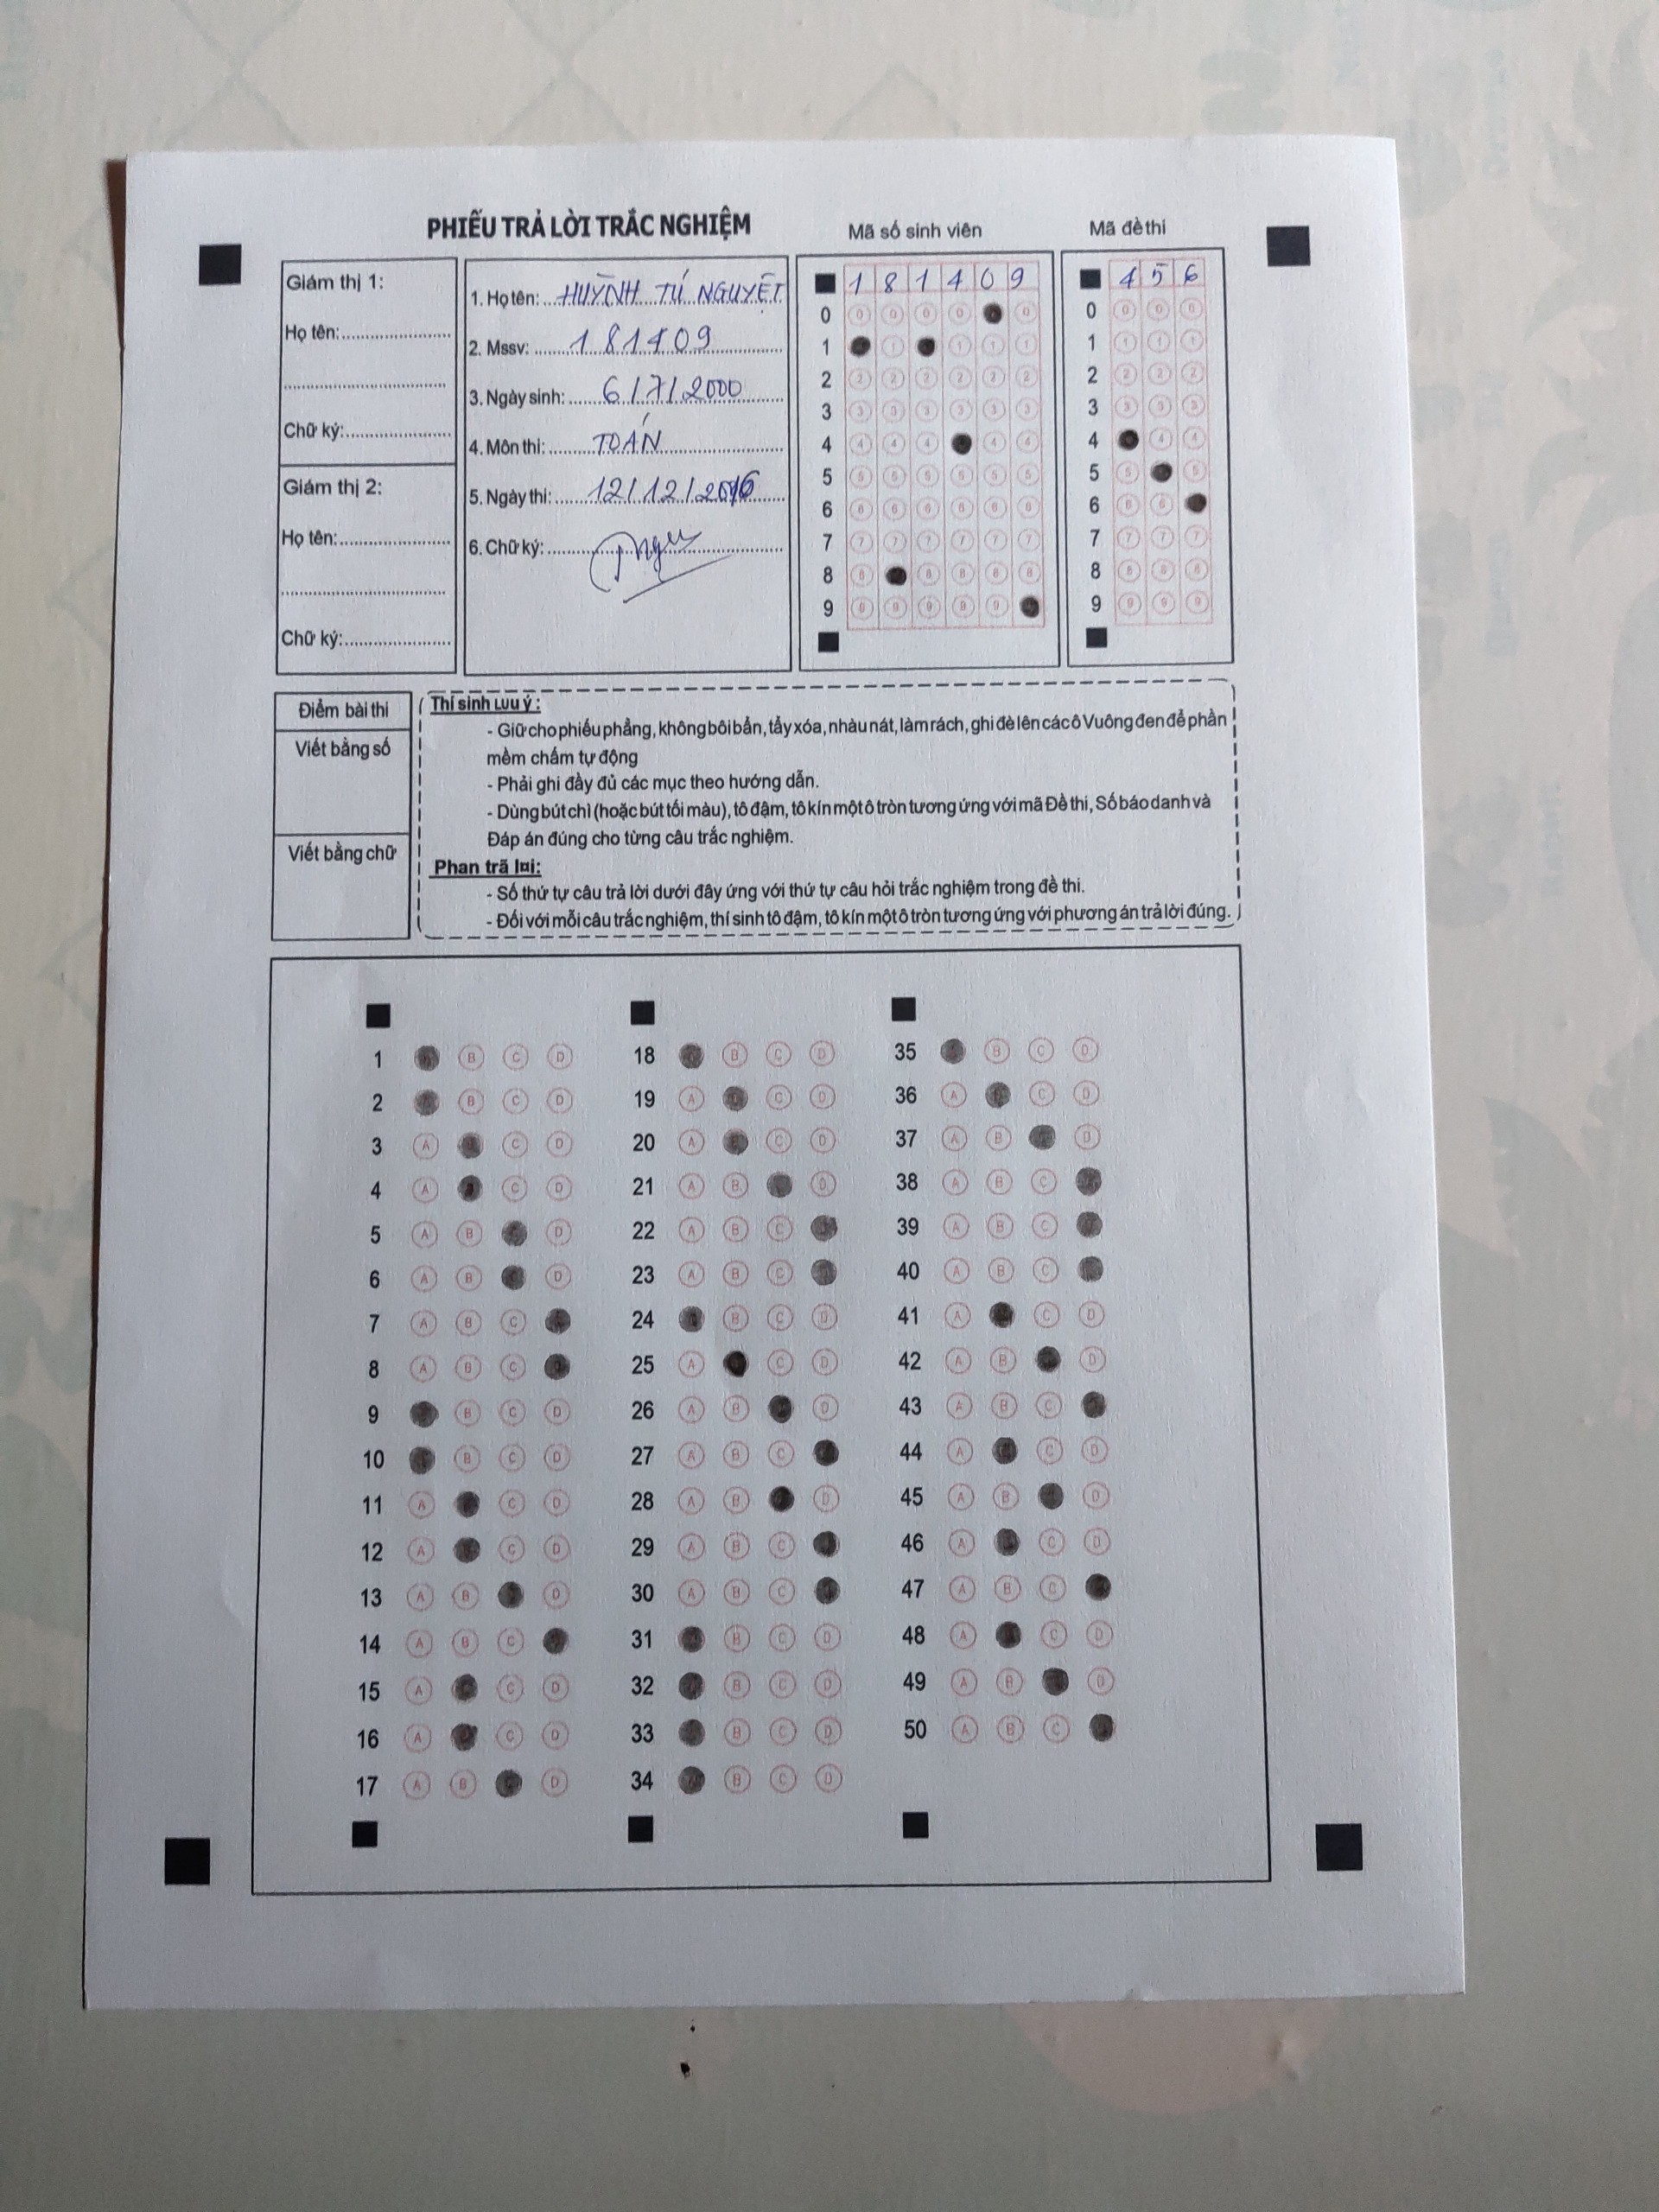 PHIẾU TRẢ LỜI TRẮC NGHIỆM
Mã số sinh viên
Mã đề thi
Giám thị 1:
Họ tên:
Chữ ký:
Giám thị 2:
Họ tên:
Chữ ký:
1. Họ tên: HUỲNH TÚ NGUYỆT
2. Mssv: 181409
3. Ngày sinh: 6/7/2000
4. Môn thi: TOÁN
5. Ngày thi: 12/12/2016
6. Chữ ký:
1 8 1 4 0 9
0 0 0 0 0 0
1 1 1 1
2 2 2 2 2 2 2
3 3 3 3 3 3 3
4 4 4 4 4 4
5 5 5 5 5 5 5
6 6 6 6 6 6 6
7 7 7 7 7 7 7
8 8 8 8 8 8
9 9 9 9 9 9
4 5 6
0 0 0 0
1 1 1 1
2 2 2 2
3 3 3 3
4 4 4
5 5 5
6 6 6
7 7 7 7
8 8 8 8
9 9 9 9
Điểm bài thi
Viết bằng số
Viết bằng chữ
Thí sinh Lưu ý:
- Giữ cho phiếu phẳng, không bôi bẩn, tẩy xóa, nhàu nát, làm rách, ghi đè lên các ô Vuông đen để phần
mềm chấm tự động
- Phải ghi đầy đủ các mục theo hướng dẫn.
- Dùng bút chì (hoặc bút tối màu), tô đậm, tô kín một ô tròn tương ứng với mã Đề thi, Số báo danh và
Đáp án đúng cho từng câu trắc nghiệm.
Phan trã lại:
- Số thứ tự câu trả lời dưới đây ứng với thứ tự câu hỏi trắc nghiệm trong đề thi.
- Đối với mỗi câu trắc nghiệm, thí sinh tô đậm, tô kín một ô tròn tương ứng với phương án trả lời đúng.
1 B C D
2 B C D
3 A C D
4 A C D
5 A B D
6 A B D
7 A B C
8 A B C
9 B C D
10 B C D
11 A C D
12 A C D
13 A B D
14 A B C
15 A C D
16 A C D
17 A B D
18 B C D
19 A C D
20 A C D
21 A B D
22 A B C
23 A B C
24 B C D
25 A C D
26 A B D
27 A B C
28 A B D
29 A B C
30 A B C
31 B C D
32 B C D
33 B C D
34 B C D
35 B C D
36 A C D
37 A B D
38 A B C
39 A B C
40 A B C
41 A C D
42 A B D
43 A B C
44 A C D
45 A B D
46 A C D
47 A B C
48 A C D
49 A B D
50 A B C